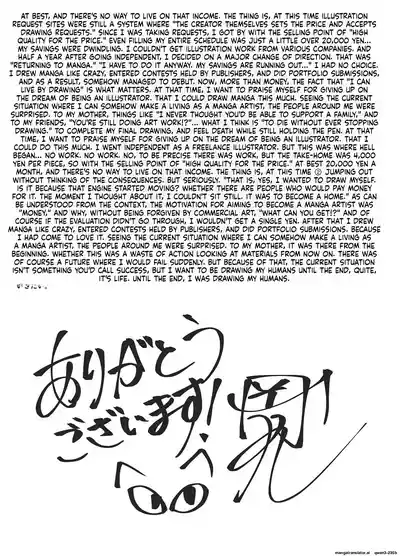 AT BEST, AND THERE'S NO WAY TO LIVE ON THAT INCOME. THE THING IS, AT THIS TIME ILLUSTRATION
REQUEST SITES WERE STILL A SYSTEM WHERE "THE CREATOR THEMSELVES SETS THE PRICE AND ACCEPTS
DRAWING REQUESTS." SINCE I WAS TAKING REQUESTS, I GOT BY WITH THE SELLING POINT OF "HIGH
QUALITY FOR THE PRICE." EVEN FILLING MY ENTIRE SCHEDULE WAS JUST A LITTLE OVER 20,000 YEN...
MY SAVINGS WERE DWINDLING. I COULDN'T GET ILLUSTRATION WORK FROM VARIOUS COMPANIES. AND
HALF A YEAR AFTER GOING INDEPENDENT, I DECIDED ON A MAJOR CHANGE OF DIRECTION. THAT WAS
"RETURNING TO MANGA." "I HAVE TO DO IT ANYWAY. MY SAVINGS ARE RUNNING OUT..." I HAD NO CHOICE.
I DREW MANGA LIKE CRAZY, ENTERED CONTESTS HELD BY PUBLISHERS, AND DID PORTFOLIO SUBMISSIONS,
AND AS A RESULT, SOMEHOW MANAGED TO DEBUT. NOW, MORE THAN MONEY, THE FACT THAT "I CAN
LIVE BY DRAWING" IS WHAT MATTERS. AT THAT TIME, I WANT TO PRAISE MYSELF FOR GIVING UP ON
THE DREAM OF BEING AN ILLUSTRATOR. THAT I COULD DRAW MANGA THIS MUCH. SEEING THE CURRENT
SITUATION WHERE I CAN SOMEHOW MAKE A LIVING AS A MANGA ARTIST, THE PEOPLE AROUND ME WERE
SURPRISED. TO MY MOTHER, THINGS LIKE "I NEVER THOUGHT YOU'D BE ABLE TO SUPPORT A FAMILY," AND
TO MY FRIENDS, "YOU'RE STILL DOING ART WORK!?"... WHAT I THINK IS "TO DIE WITHOUT EVER STOPPING
DRAWING." TO COMPLETE MY FINAL DRAWING, AND FEEL DEATH WHILE STILL HOLDING THE PEN. AT THAT
TIME, I WANT TO PRAISE MYSELF FOR GIVING UP ON THE DREAM OF BEING AN ILLUSTRATOR. THAT I
COULD DO THIS MUCH. I WENT INDEPENDENT AS A FREELANCE ILLUSTRATOR. BUT THIS WAS WHERE HELL
BEGAN... NO WORK. NO WORK. NO, TO BE PRECISE THERE WAS WORK, BUT THE TAKE-HOME WAS 4,000
YEN PER PIECE, SO WITH THE SELLING POINT OF "HIGH QUALITY FOR THE PRICE." AT BEST 20,000 YEN A
MONTH, AND THERE'S NO WAY TO LIVE ON THAT INCOME. THE THING IS, AT THIS TIME ② JUMPING OUT
WITHOUT THINKING OF THE CONSEQUENCES. BUT SERIOUSLY. "THAT IS, YES, I WANTED TO DRAW MYSELF.
IS IT BECAUSE THAT ENGINE STARTED MOVING? WHETHER THERE ARE PEOPLE WHO WOULD PAY MONEY
FOR IT. THE MOMENT I THOUGHT ABOUT IT, I COULDN'T SIT STILL. IT WAS TO BECOME A HOME." AS CAN
BE UNDERSTOOD FROM THE CONTEXT, THE MOTIVATION FOR AIMING TO BECOME A MANGA ARTIST WAS
"MONEY," AND WHY, WITHOUT BEING FORGIVEN BY COMMERCIAL ART, "WHAT CAN YOU GET!?" AND OF
COURSE IF THE EVALUATION DIDN'T GO THROUGH, I WOULDN'T GET A SINGLE YEN. AFTER THAT I DREW
MANGA LIKE CRAZY, ENTERED CONTESTS HELD BY PUBLISHERS, AND DID PORTFOLIO SUBMISSIONS. BECAUSE
I HAD COME TO LOVE IT. SEEING THE CURRENT SITUATION WHERE I CAN SOMEHOW MAKE A LIVING AS
A MANGA ARTIST, THE PEOPLE AROUND ME WERE SURPRISED. TO MY MOTHER, IT WAS THERE FROM THE
BEGINNING. WHETHER THIS WAS A WASTE OF ACTION LOOKING AT MATERIALS FROM NOW ON. THERE WAS
OF COURSE A FUTURE WHERE I WOULD FAIL SUDDENLY. BUT BECAUSE OF THAT, THE CURRENT SITUATION
ISN'T SOMETHING YOU'D CALL SUCCESS, BUT I WANT TO BE DRAWING MY HUMANS UNTIL THE END, QUITE,
IT'S LIFE. UNTIL THE END, I WAS DRAWING MY HUMANS.
ありがとう
ございます!
mangatranslator.ai